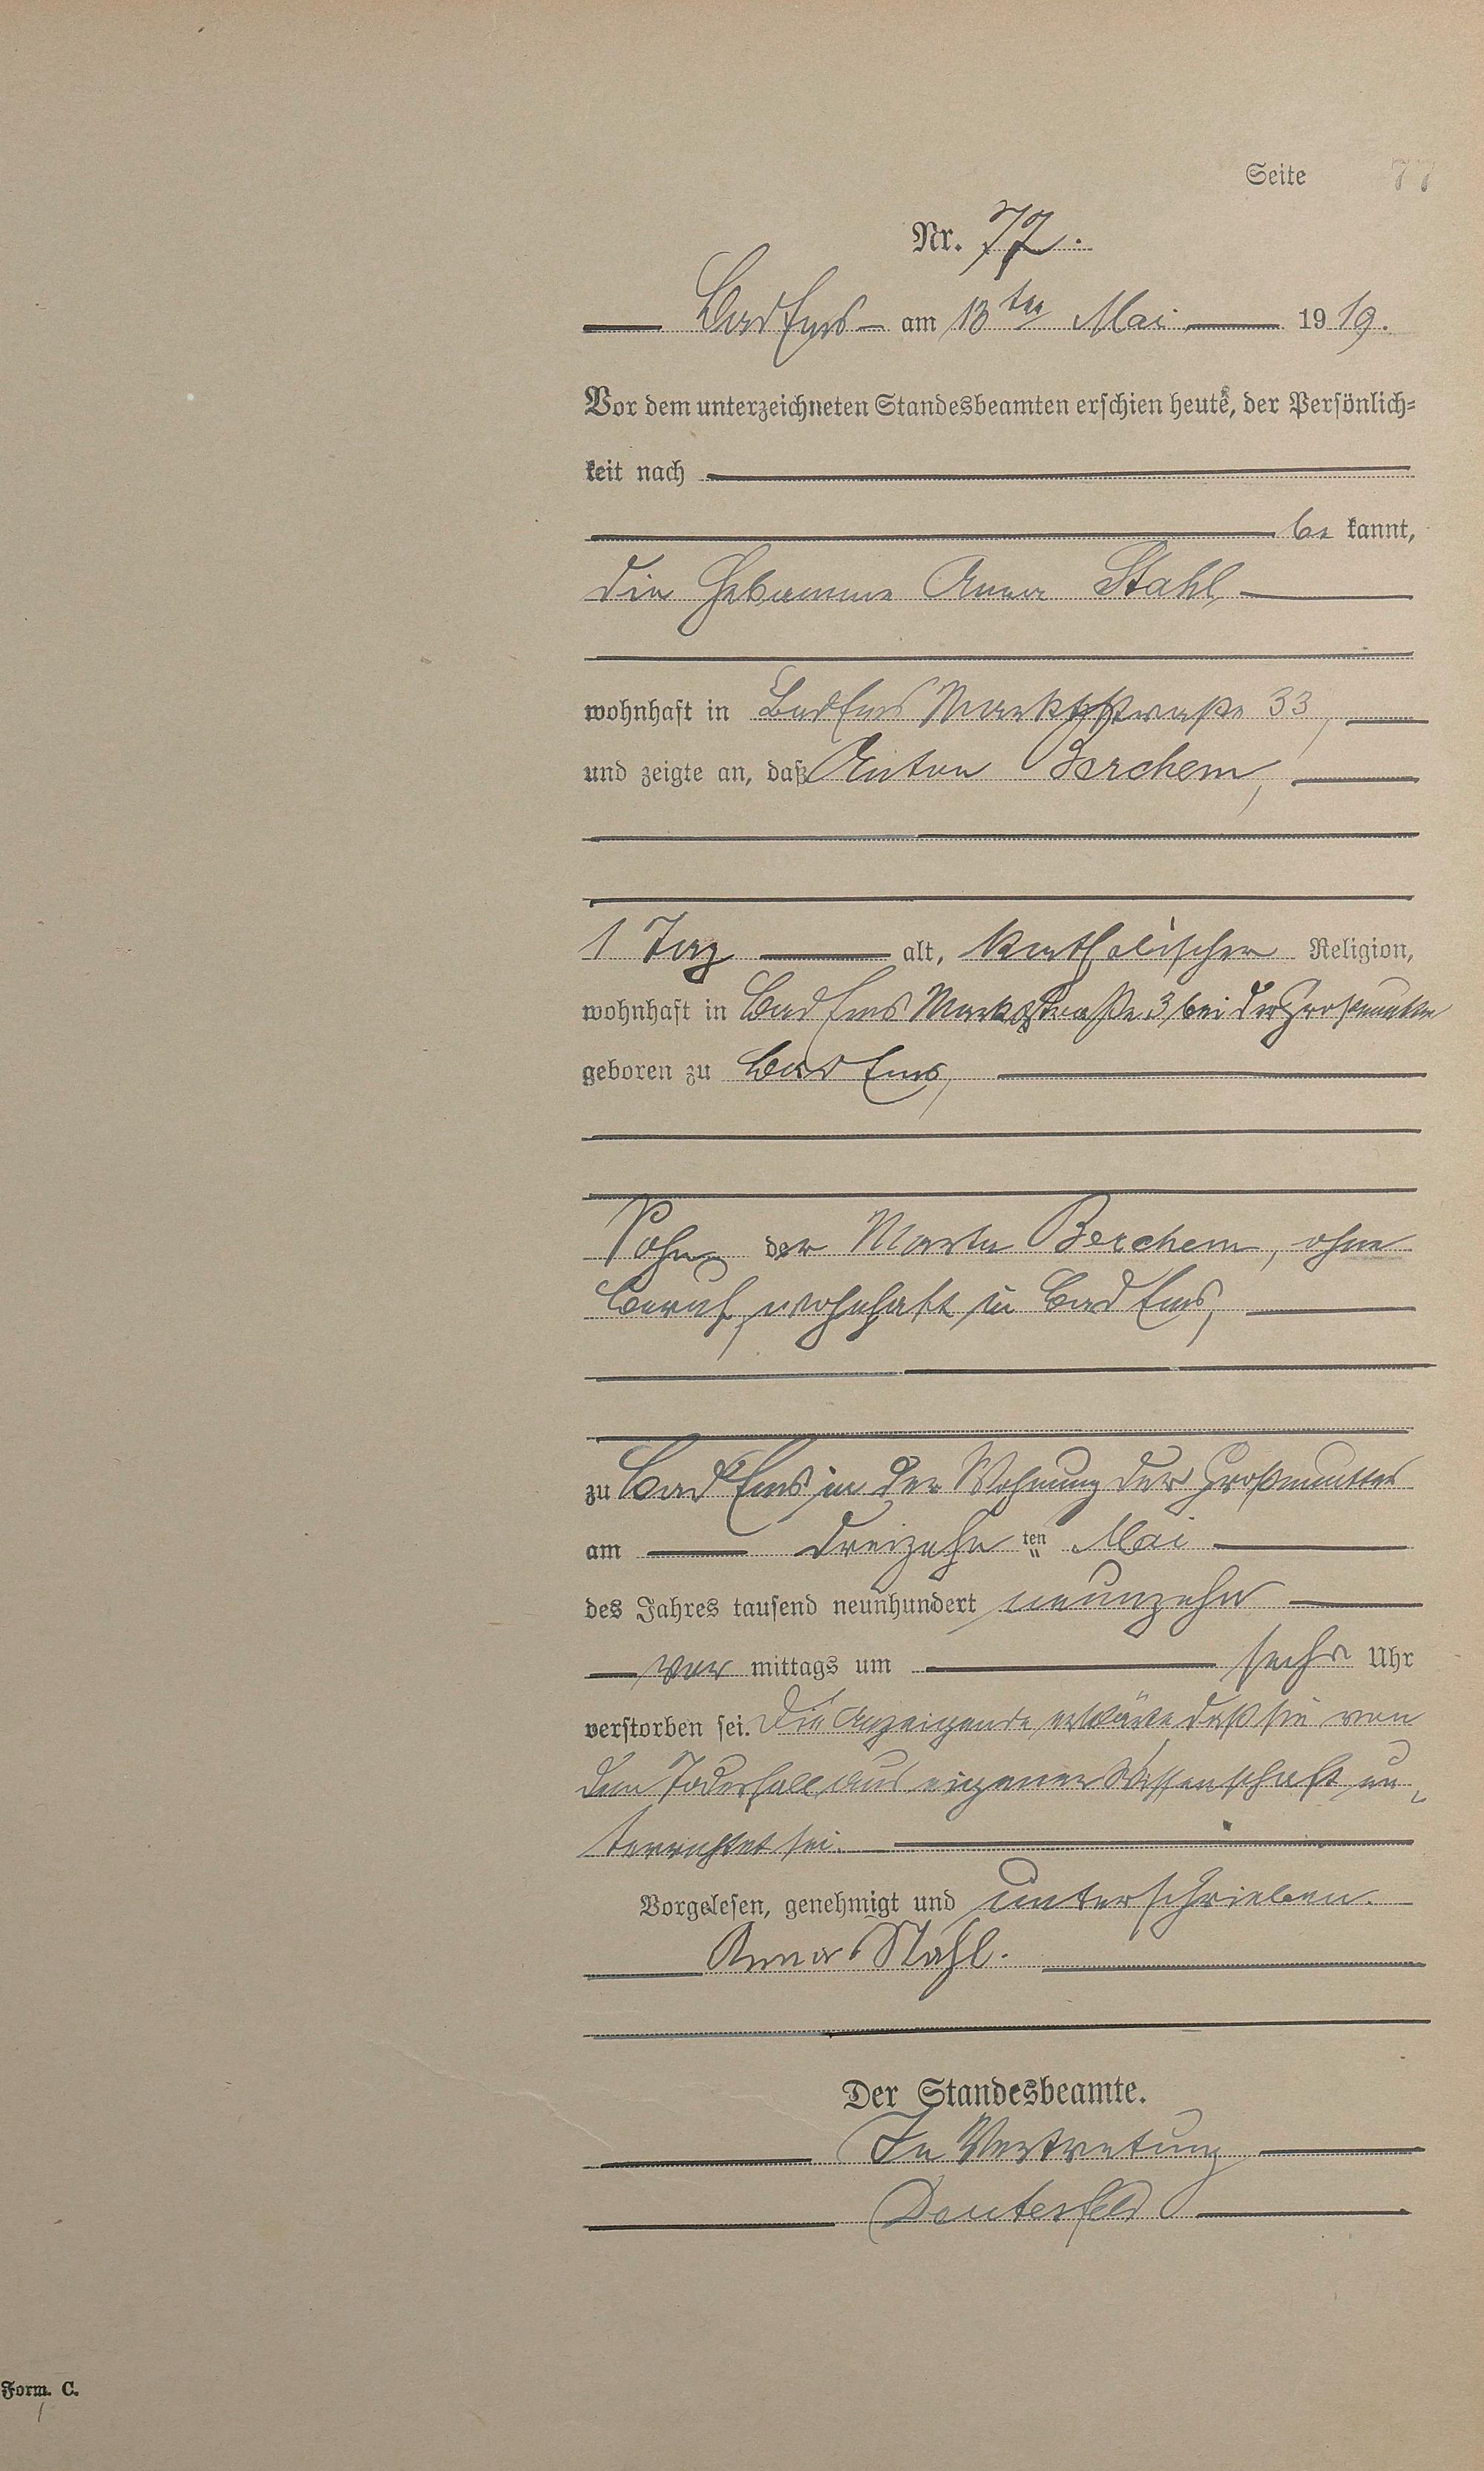 Seite 77
Nr. 77.
Bad Ems am 13ten Mai 1919.
Vor dem unterzeichneten Standesbeamten erschien heute, der Persönlich-
keit nach
be kannt,
die Hebamme Anna Stahl
wohnhaft in Bad Ems Marktstraße 33,
und zeigte an, daß Anton Berchem,
1 Tag alt, katholischer Religion,
wohnhaft in Bad Ems Marktstraße 3 bei der Großmutter
geboren zu Bad Ems,
Sohn der Berchem, ohne
Beruf, wohnhaft in Bad Ems,
zu Bad Ems in der Wohnung der Großmutter
am dreizehn ten Mai
des Jahres tausend neunhundert neunzehn
vor mittags um sechs Uhr
verstorben sei. Die Anzeigende erklärte daß sie von
dem Todesfall aus eigener Wissenschaft un-
terrichtet sei.
Vorgelesen, genehmigt und unterschrieben.
Anna Stahl.
Der Standesbeamte.
In Vertretung
Form. C.